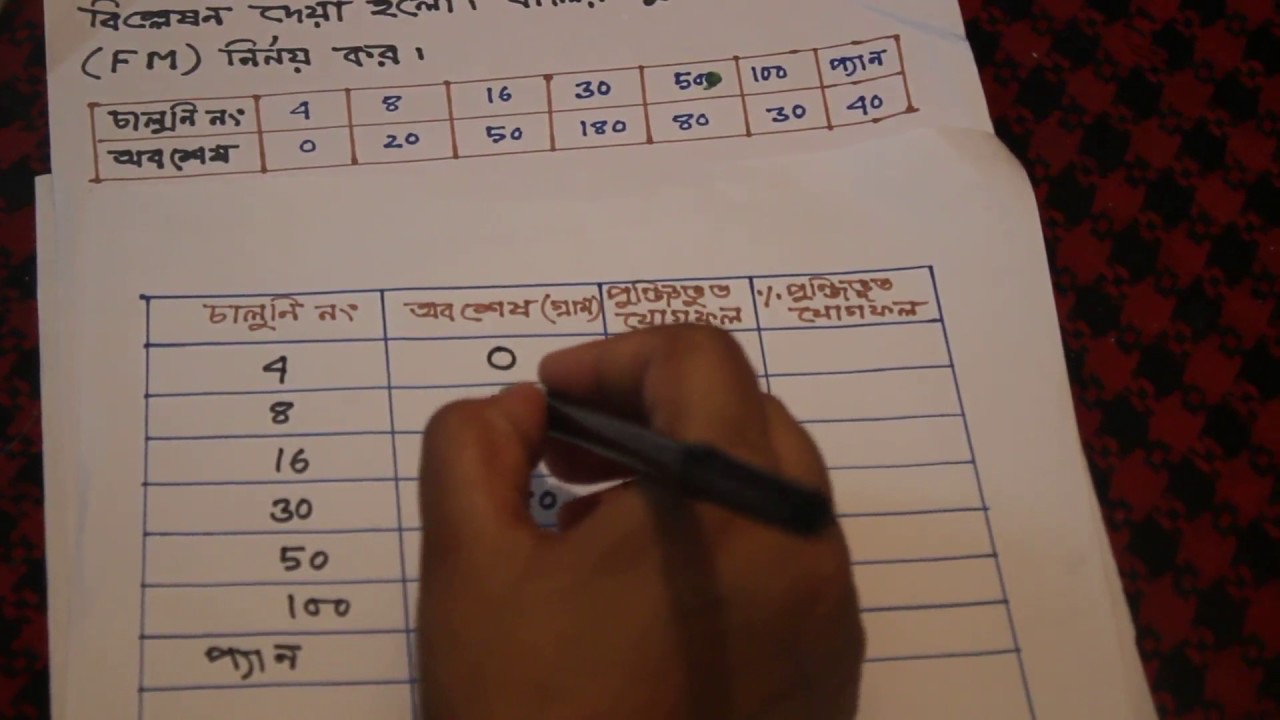 বিশ্লেষন দেয়া হলো।
(FM) নির্নয় কর।
চালুনি নং 4 8 16 30 50 100 প্যান
অবশেষ 0 20 50 180 80 30 40
চালুনি নং অবশেষ (গ্রাম) পুঞ্জিভূত যোগফল % পুঞ্জিভূত যোগফল
4 0
8
16
30
50
100
প্যান